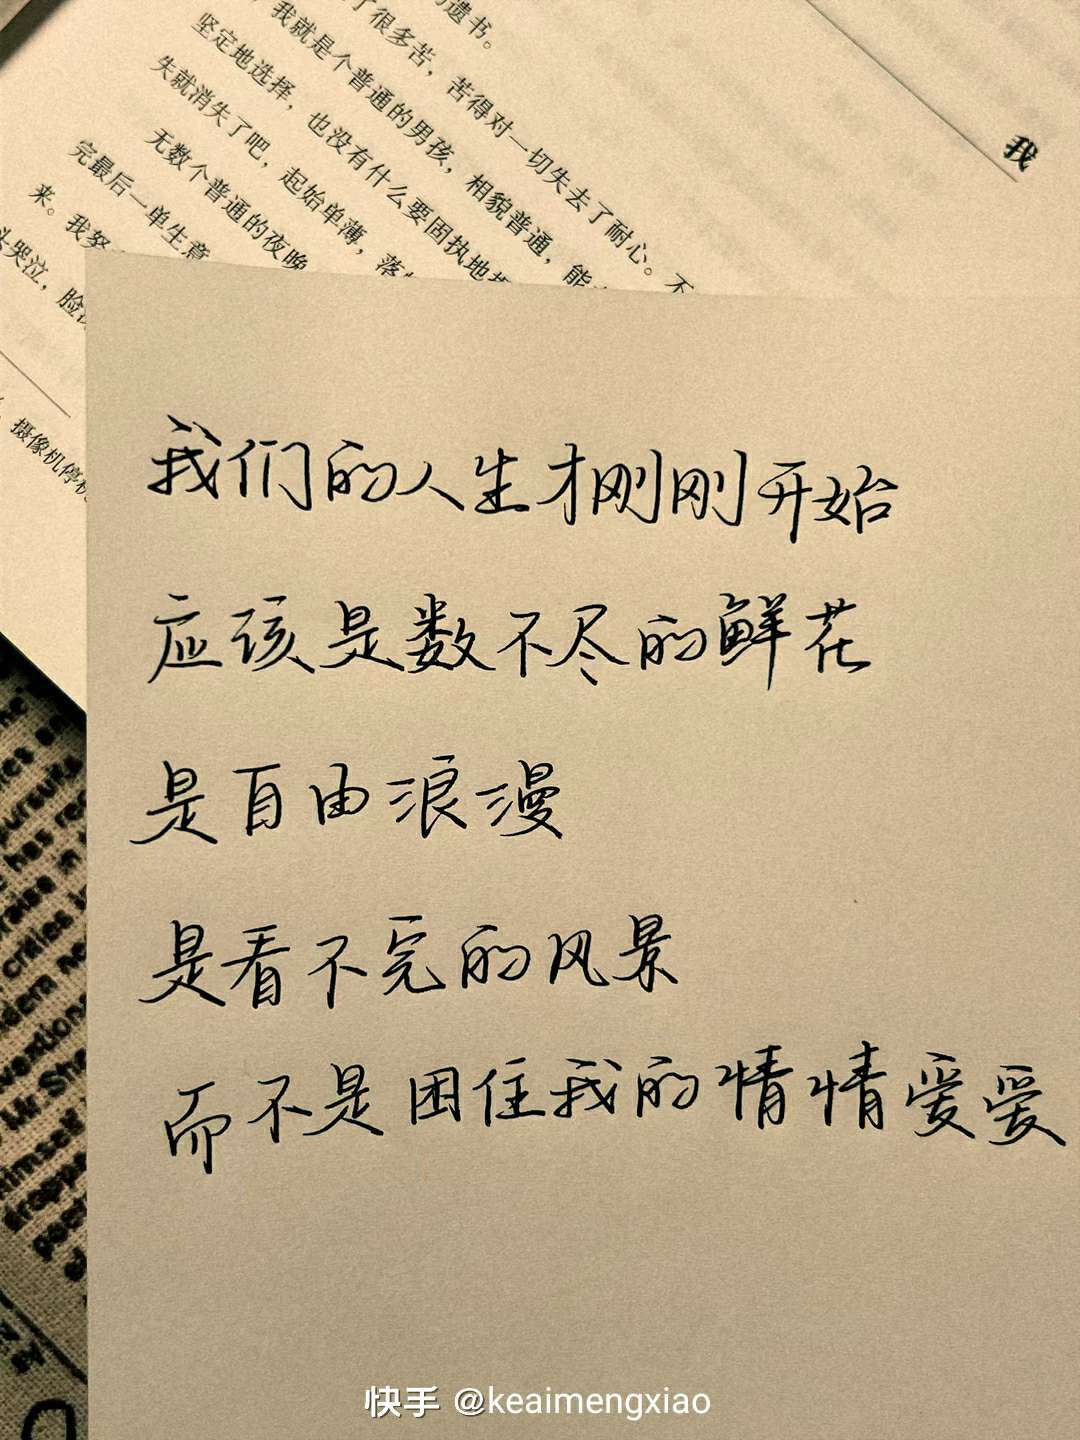 遗书。
了很多苦，苦得对一切失去了耐心。不
我就是个普通的男孩，相貌普通，能
坚定地选择，也没有什么要固执地
失就消失了吧，起始单薄，落
无数个普通的夜晚
完最后一单生意
来。我努
头哭泣，脸
摄像机停
我
我们的人生才刚刚开始
应该是数不尽的鲜花
是自由浪漫
是看不完的风景
而不是困住我的情情爱爱
快手 @keaimengxiao